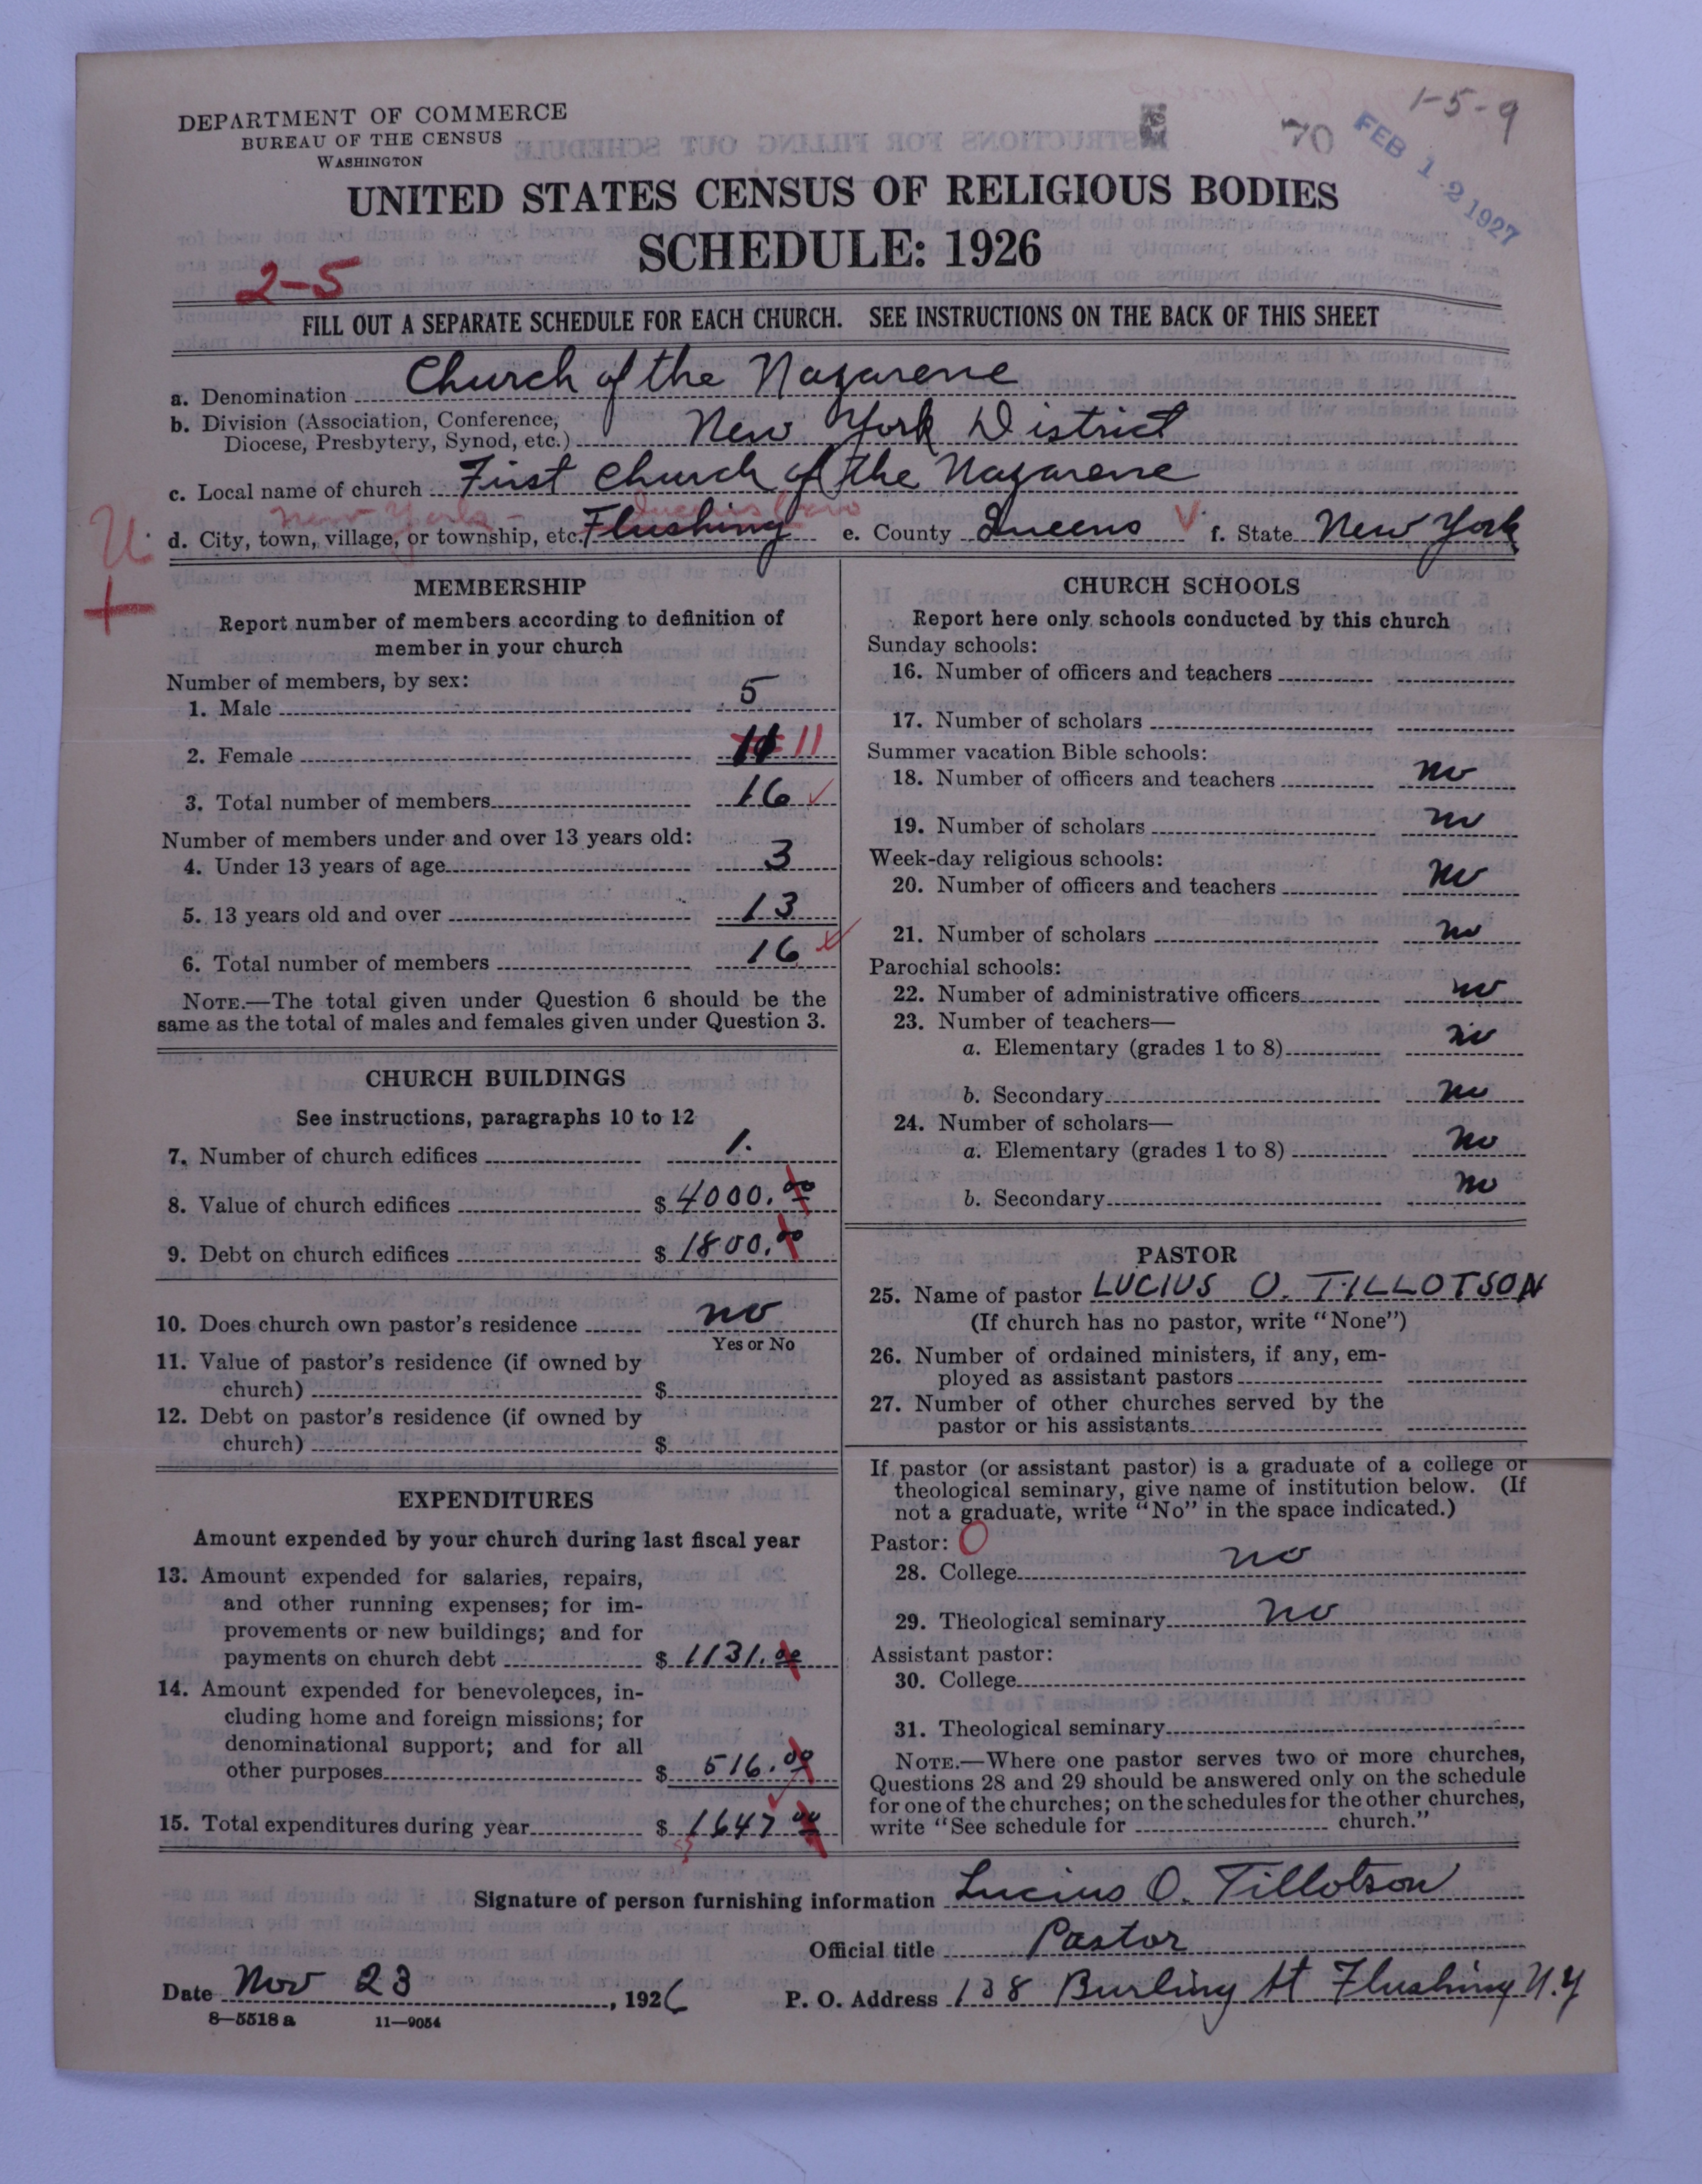 DEPARTMENT OF COMMERCE
BUREAU OF THE CENSUS
WASHINGTON
1-5-9
70
FEB 12 1927
UNITED STATES CENSUS OF RELIGIOUS BODIES
SCHEDULE: 1926
2-5
FILL OUT A SEPARATE SCHEDULE FOR EACH CHURCH. SEE INSTRUCTIONS ON THE BACK OF THIS SHEET
a. Denomination Church of the Nazarene
b. Division (Association, Conference,
Diocese, Presbytery, Synod, etc.) New York District
c. Local name of church First Church of the Nazarene
New York - Queens boro
d. City, town, village, or township, etc. Flushing e. County Queens f. State New York
MEMBERSHIP
Report number of members according to definition of
member in your church
Number of members, by sex:
1. Male 5
2. Female 11 11
3. Total number of members 16
Number of members under and over 13 years old:
4. Under 13 years of age 3
5. 13 years old and over 13
6. Total number of members 16
NOTE.—The total given under Question 6 should be the
same as the total of males and females given under Question 3.
CHURCH BUILDINGS
See instructions, paragraphs 10 to 12
7. Number of church edifices 1.
8. Value of church edifices $ 4000.00
9. Debt on church edifices $ 1800.00
10. Does church own pastor's residence no
Yes or No
11. Value of pastor's residence (if owned by
church) $
12. Debt on pastor's residence (if owned by
church) $
EXPENDITURES
Amount expended by your church during last fiscal year
13. Amount expended for salaries, repairs,
and other running expenses; for im-
provements or new buildings; and for
payments on church debt $ 1131.00
14. Amount expended for benevolences, in-
cluding home and foreign missions; for
denominational support; and for all
other purposes $ 516.00
15. Total expenditures during year $ 1647 00
CHURCH SCHOOLS
Report here only schools conducted by this church
Sunday schools:
16. Number of officers and teachers
17. Number of scholars
Summer vacation Bible schools:
18. Number of officers and teachers no
19. Number of scholars no
Week-day religious schools:
20. Number of officers and teachers no
21. Number of scholars no
Parochial schools:
22. Number of administrative officers no
23. Number of teachers—
a. Elementary (grades 1 to 8) no
b. Secondary no
24. Number of scholars—
a. Elementary (grades 1 to 8) no
b. Secondary no
PASTOR
25. Name of pastor LUCIUS O. TILLOTSON
(If church has no pastor, write "None")
26. Number of ordained ministers, if any, em-
ployed as assistant pastors
27. Number of other churches served by the
pastor or his assistants
If pastor (or assistant pastor) is a graduate of a college or
theological seminary, give name of institution below. (If
not a graduate, write "No" in the space indicated.)
Pastor: O
28. College no
29. Theological seminary no
Assistant pastor:
30. College
31. Theological seminary
NOTE.—Where one pastor serves two or more churches,
Questions 28 and 29 should be answered only on the schedule
for one of the churches; on the schedules for the other churches,
write "See schedule for church."
Signature of person furnishing information Lucius O. Tillotson
Official title Pastor
Date Nov 23, 1926 P. O. Address 138 Burling St Flushing N.Y
8—5518 a 11—9054